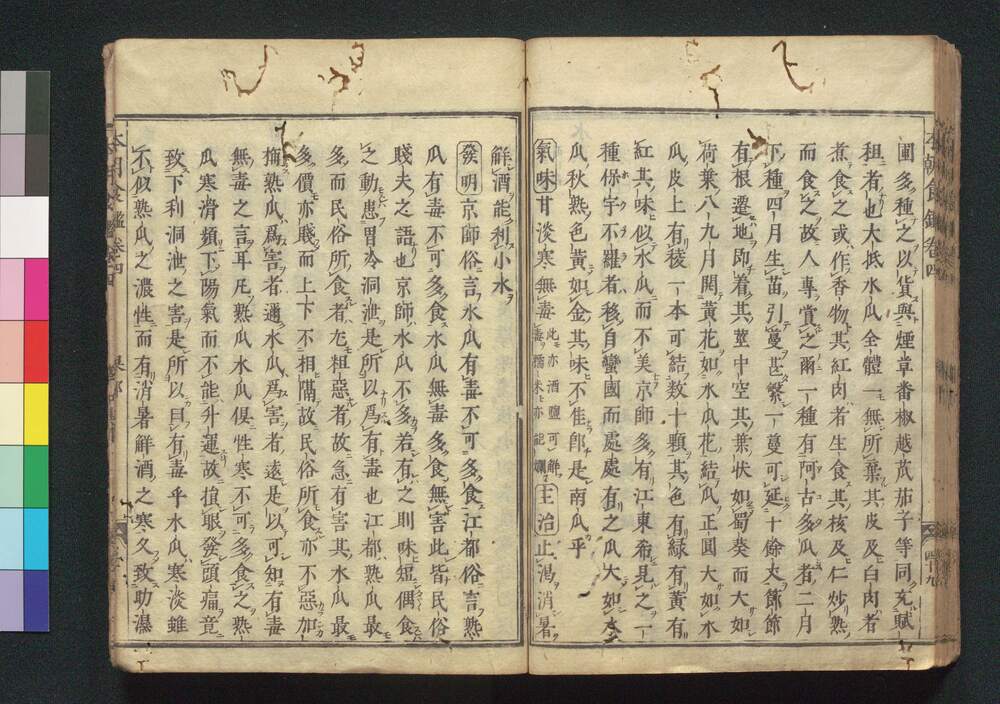 圃多種之以貨與煙草番椒越苽茄子等同充賦
租者也大抵水瓜全體一無所棄其皮及白肉者
煮食之或作香物其紅肉者生食其核及仁炒熟
而食之故人專賞之爾一種有阿古多瓜者二月
下種四月生苗引蔓甚繁一蔓可延十餘丈節節
有根遷地即着其莖中空其葉狀如蜀葵而大如
荷葉八九月開黃花如水瓜花結瓜正圓大如水
瓜皮上有稜一本可結数十顆其色有緑有黃有
紅其味似水瓜而不美京師多有江東希見之一
種保宇不羅者移自蠻國而處處有之瓜大如水
瓜秋熟色黃如金其味不佳即是南瓜乎
氣味甘淡寒無毒此亦酒鹽可解毒糯米亦能爛主治止渴消暑
解酒能利小水
發明京師俗言水瓜有毒不可多食江都俗言熟
瓜有毒不可多食水瓜無毒多食無害此皆民俗
賤夫之語也京師水瓜不多若有之則味短偶食
之動患胃冷洞泄是所以爲有毒也江都熟瓜最
多而民俗所食者尤粗惡者故急有害其水瓜最
多價亦賤而上下不相隔故民俗所食亦不惡加
旃熟瓜爲害者邇水瓜爲害者遠是以可知有毒
無毒之言耳凡熟瓜水瓜俱性寒不可多食之熟
瓜寒滑頻下陽氣而不能升運故損眼發頭痛竟
致下利洞泄之害是所以曰有毒乎水瓜寒淡雖
不似熟瓜之濃性而有消暑解酒之寒久致助濕
本朝食鑑卷四
四十九